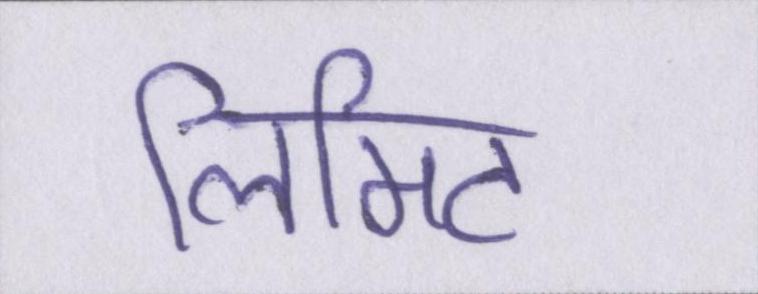 लिमिट